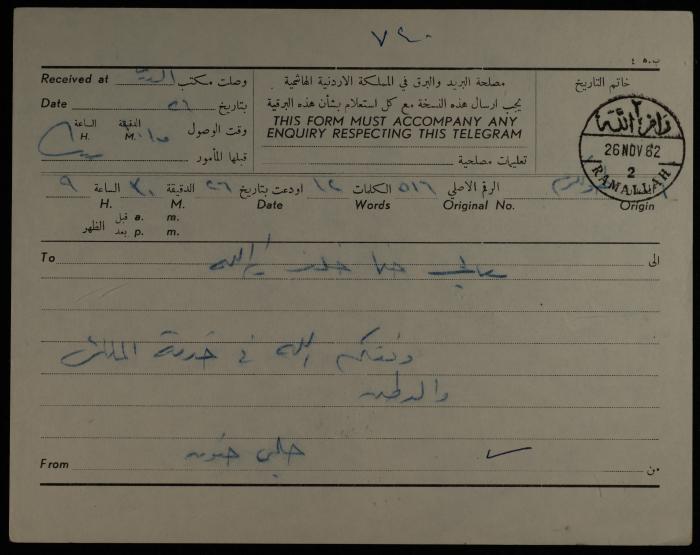 ٧٤٠
ب.ه ٤
Received at وصلت مكتب البريد
Date بتاريخ ٢٦
الساعة H. الدقيقة M. وقت الوصول
قبلها المأمور
مصلحة البريد والبرق في المملكة الاردنية الهاشمية
يجب ارسال هذه النسخة مع كل استعلام بشأن هذه البرقية
THIS FORM MUST ACCOMPANY ANY
ENQUIRY RESPECTING THIS TELEGRAM
تعليمات مصلحية
خاتم التاريخ
رام الله ٢
26 NOV 62
2
RAMALLAH
٩ الساعة ٣٠ الدقيقة ٢٦ اودعت بتاريخ ١٢ الكلمات ٥١٦ الرقم الاصلي
H. M. Date Words Original No. Origin
قبل a. m.
الظهر
بعد p. m.
To معالي حنا خلف رام الله الى
وفقكم الله في خدمة المليك
والوطن
حلمي حنون
From من